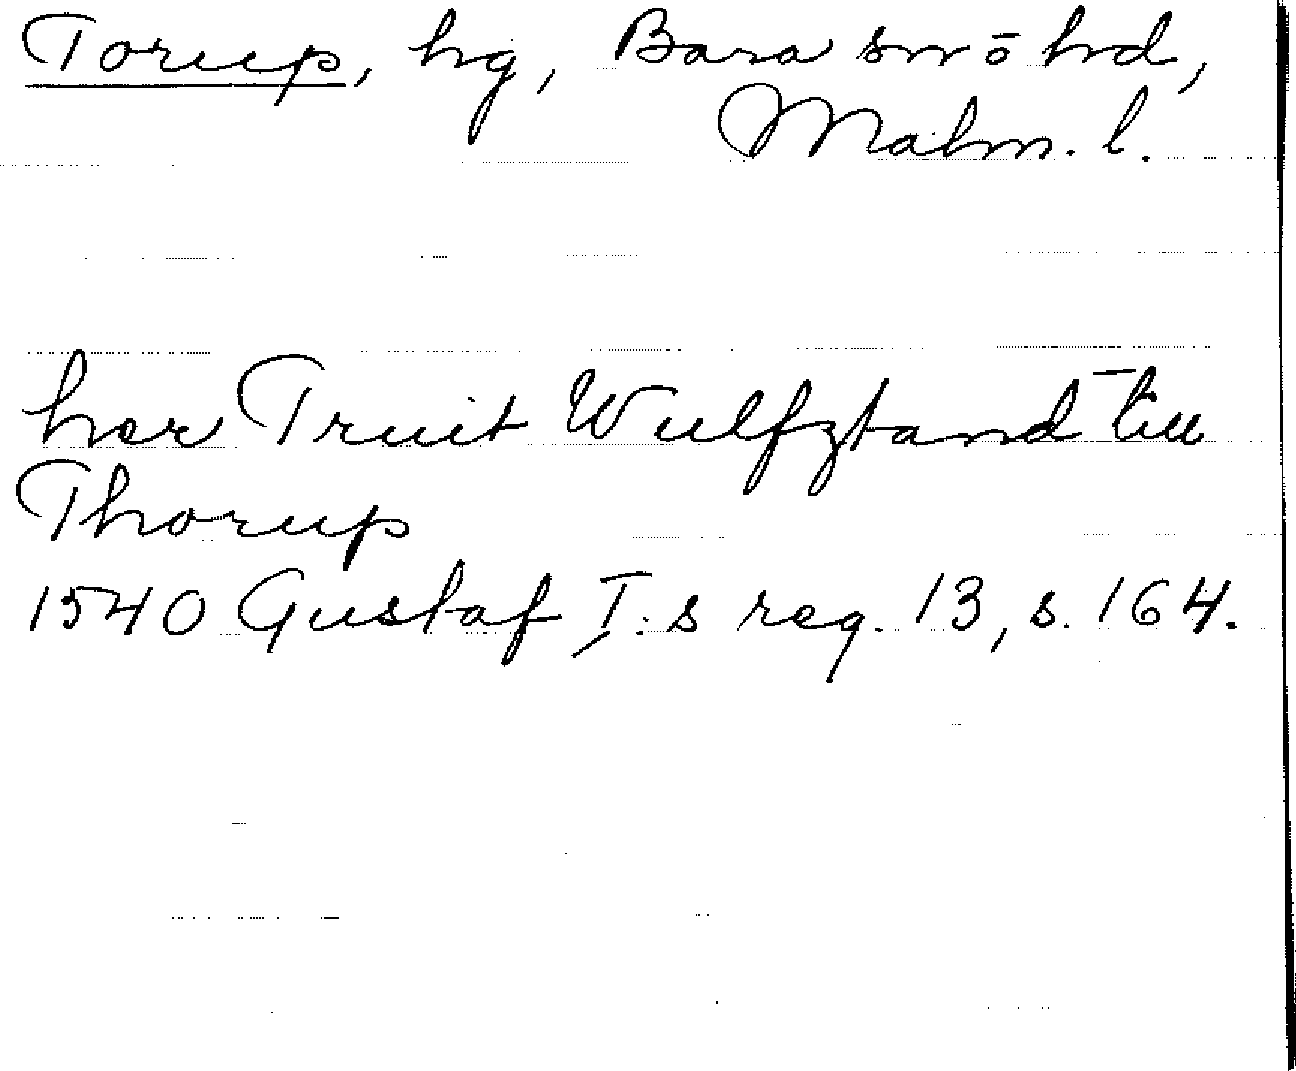 Torup, hg, Bara sn o hd,
Malm. l.
her Truit Wulfztand till
Thorup
1540 Gustaf I:s reg. 13, s. 164.